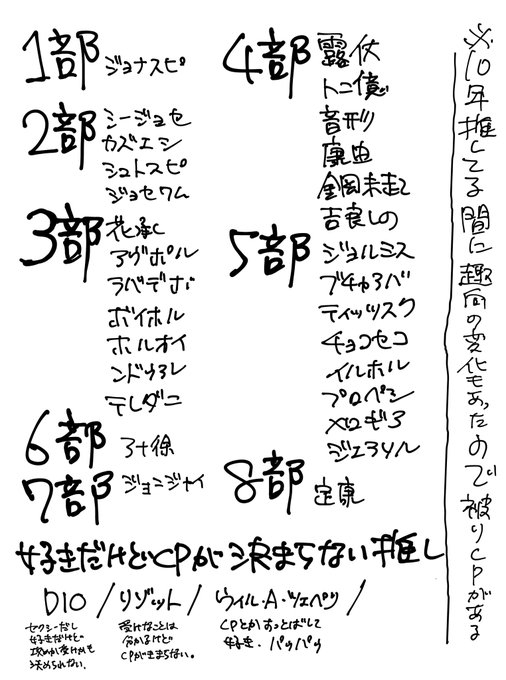 ※10年推してる間に趣向の変化もあったので被りCPがある
1部
ジョナスピ
2部
シージョセ
カズエシ
シュトスピ
ジョセワム
3部
花承
アヴポル
ラバデボ
ボイホル
ホルオイ
ンドゥアレ
テレダニ
4部
露仗
トニ億
音形
康由
鋼田未起
吉良しの
5部
ジョルミス
ブチャアバ
ティッツスク
チョコセコ
イルホル
プロペシ
メロギア
ジェアソル
6部
アナ徐
7部
ジョニジャイ
8部
定康
好きだけどCPが決まらない推し
DIO/リゾット/ウィル・A・ツェペリ/
セクシーだし
好きだけど
攻めか受けかも
決められない。
受けなことは
分かるけど
CPがきまらない。
CPとかすっとばして
好き・パパ